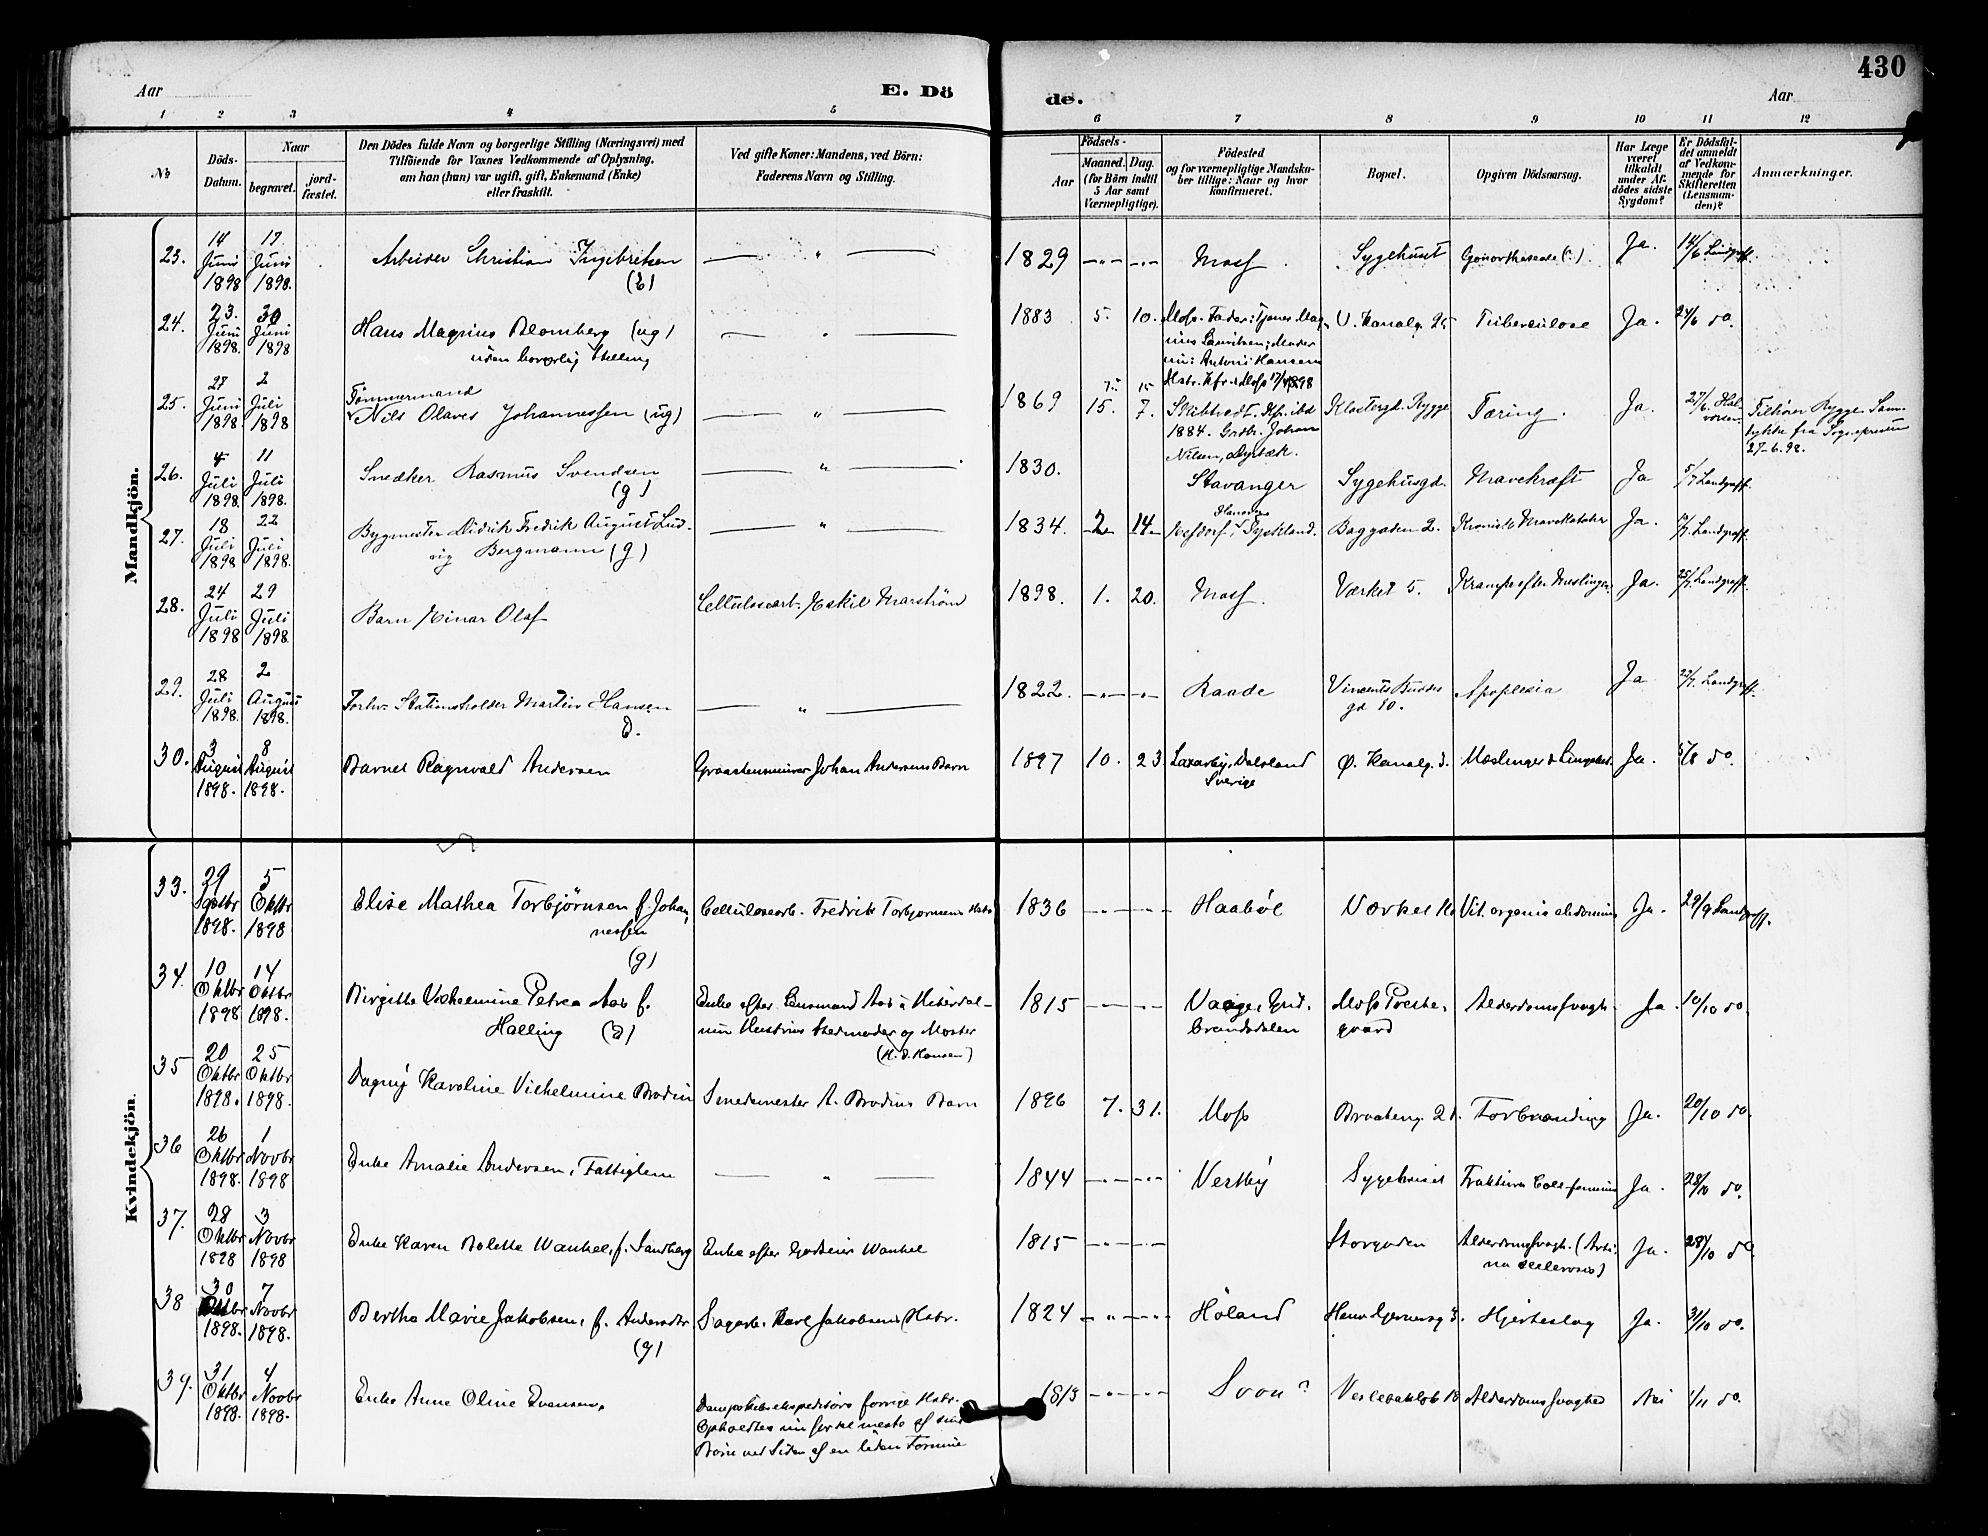 430
Aar
E. Dö
de.
Aar
1 2 3 4 5 6 7 8 9 10 11 12
No
Döds-
Datum.
Naar
begravet.
jord-
fæstet.
Den Dödes fulde Navn og borgerlige Stilling (Næringsvei) med
Tilföiende for Voxnes Vedkommende af Oplysning,
om han (hun) var ugift, gift, Enkemand (Enke)
eller fraskilt.
Ved gifte Koner: Mandens, ved Börn:
Faderens Navn og Stilling.
Födsels-
Aar
Maaned.
Dag.
(for Börn indtil
5 Aar samt
Værnepligtige).
Födested
og for værnepligtige Mandska-
ber tillige: Naar og hvor
konfirmeret.
Bopæl.
Opgiven Dödsaarsag.
Har Læge
været
tilkaldt
under Af-
dödes sidste
Sygdom?
Er Dödsfal-
det anmeldt
af Vedkom-
mende for
Skifteretten
(Lensman-
den)?
Anmærkninger.
Mandkjön.
23. 14 Juni 1898 17 Juni 1898. Arbeider Christian Ingebretsen 1829 Moss. Sygehuset Ja. 14/6 Landgraff.
24. 23. Juni 1898. 30 Juni 1898 Hans Magnius Blomberg (ug)
uden borgerlig Stilling
1883 5. 10. Moss. Fader: V. Kanalg. Tuberculose Ja. 24/6 do.
25. 27 Juni 1898. 2 Juli 1898 Tømmermand
Nils Olaves Johannessen (ug)
1869 15. 7. 1884. Gbr. Johan
Nilsen, Klostergd. Rygge Tæring. Ja. 27/6 Hal-
vorsen.
Tilhører Rygge. Sam-
tykke fra Sognepresten
27-6.98.
26. 4 Juli 1898. 11 Juli 1898. Snedker Rasmus Svendsen
(g)
1830. Stavanger Sygehusgd. Mavekræft Ja 5/7 Landgraff.
27. 18 Juli 1898 22 Juli 1898. Bygmester Didrik Fredrik August Lud-
vig Bergmann (g)
1834. 2 14 Tyskland. Baggaden 2. Kronisk Mavekatarr Ja. Landgraff.
28. 24 Juli 1898 29 Juli 1898. Barn Einar Olaf Cellulosearb. Eskil Marstrøm 1898. 1. 20. Moss. Værket 5. Krampe efter Meslinger Ja. 25/7 Landgraff.
29. 28 Juli 1898. 2 August 1898. Forhv. Stationsholder Martin Hansen
E.
1822. Raade Vincents Buddes
gd 10. Apoplexia Ja Landgraff.
30. 3 August 1898. 8 August 1898. Barnet Ragnvald Andersen Johan Andersens Barn 1897 10. 23 Dalsland
Sverige Ø. Kanalg. 3. Meslinger & Lungebet. Ja. 5/8 do.
Kvindekjön.
33. 29 Septbr 1898. 5 Oktbr 1898 Elise Mathea Torbjørnsen f. Johan-
nessen
(g)
Cellulosearb. Fredrik Torbjørnsens Hstr. 1836 Haabøl Værket 16 Vit. organic abdominis Ja. 29/9 Landgraff.
34. 10 Oktbr 1898 14 Oktbr 1898. Birgitte Vilhelmine Petrea Aas f.
Halling
Enke efter Lensmand Aas i Hiterdal-
min Hustrus Stedmoder og Moster
1815 Vaage, Gud-
brandsdalen Moss Preste-
gaard Alderdomssvagh. Ja 10/10 do.
35 20 Oktbr 1898. 25 Oktbr 1898. Dagny Karoline Vilhelmine Brodin Smedemester A. Brodins Barn 1896 7. 31. Moss Braateng. 21. Forbrænding Ja. 20/10 do.
36 26 Oktbr 1898. 1 Novbr 1898 Enke Amalie Andersen, Fattiglem 1844 Vestby Sygehuset Fraktura Coll. femoris Ja. 28/10 do.
37. 28 Oktbr 1898 3 Novbr 1898 Enke Karen Bolette Wankel, f. Sandberg Enke efter Wankel 1815 Storgaden Alderdomssvagh. Ja. 28/10 do.
38 30 Oktbr 1898. 7 Novbr 1898. Bertha Marie Jakobsen, f. Andersdtr
(g)
Sagarb. Karl Jakobsens Hstr. 1824 Høland Hjerteslag Ja. 31/10 do.
39. 31 Oktbr 1898. 4 Novbr 1898. Enke Anne Oline Evensen, Dampskibsekspeditørs forrige Hstr.
Opholdtes nu for det meste af sine
Børn ved Siden af en liden Formue
1813 Alderdomssvaghed Nei 1/11 do.